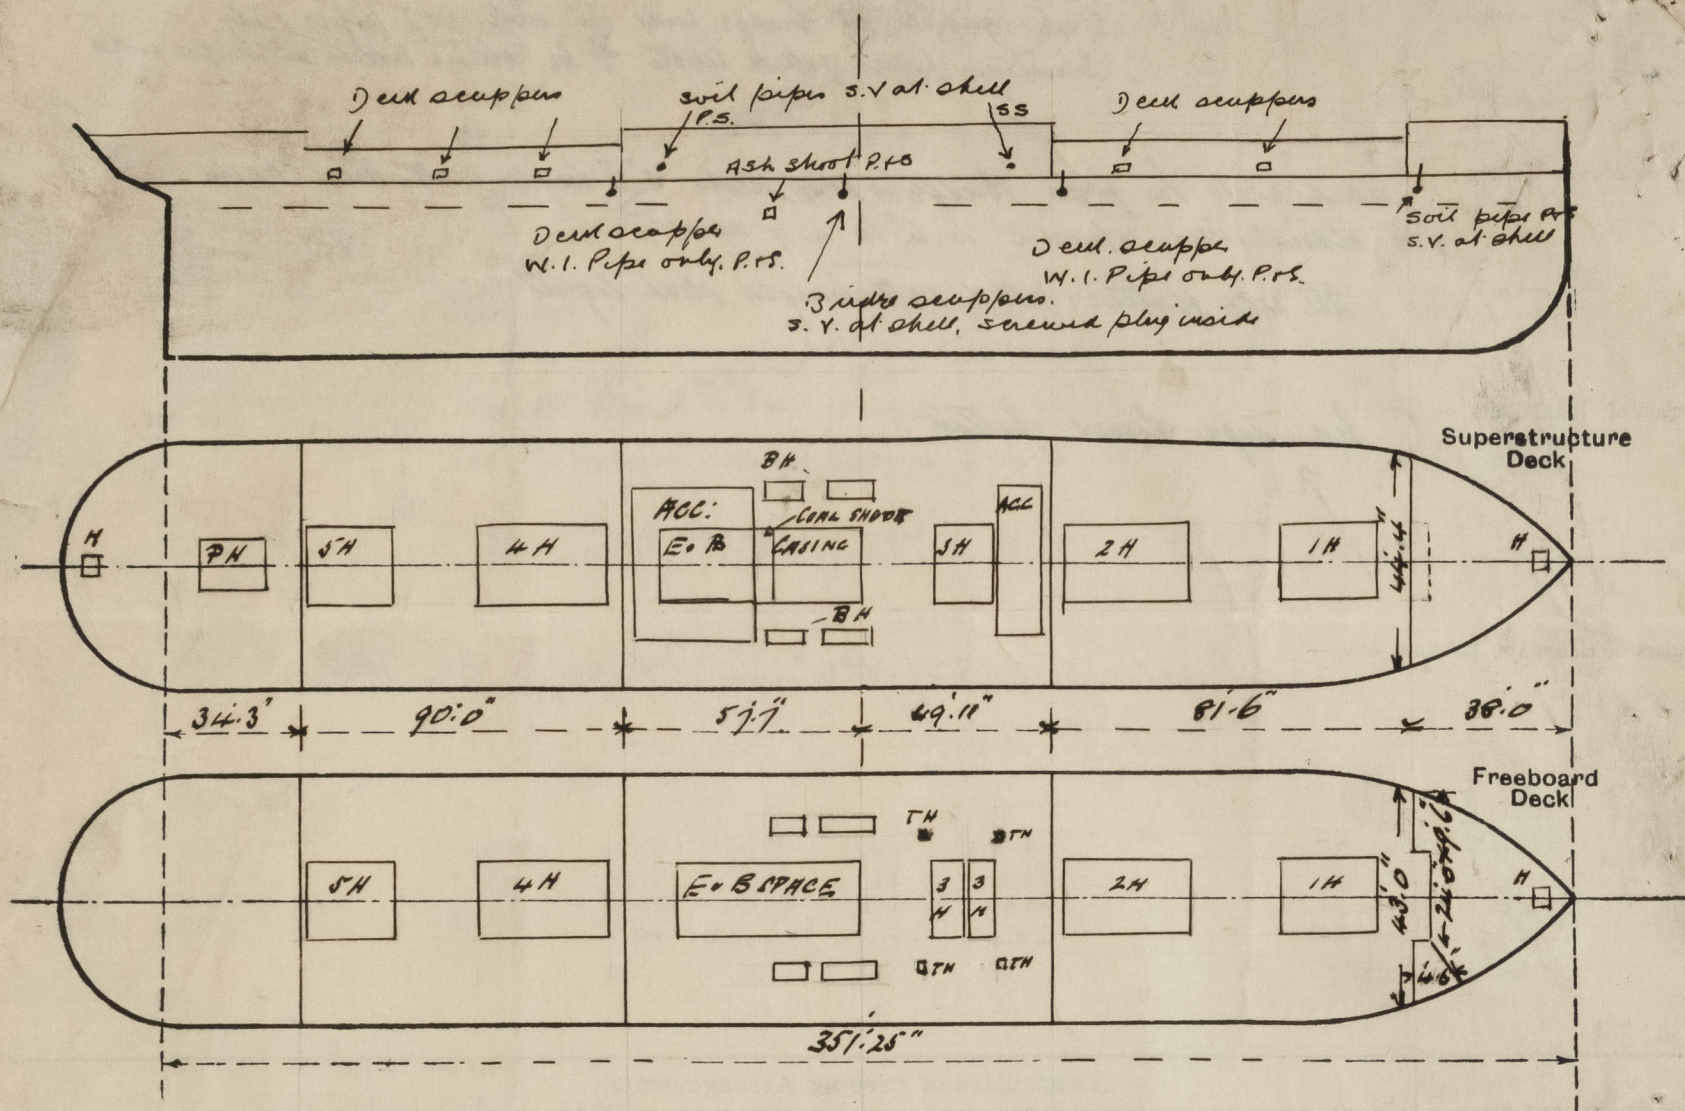 Deck scuppers
soil pipes s.v at shell
P.S.
SS
Deck scuppers
Ash shoot P.+S
Deck scupper
W.I. Pipe only. P.+S.
Deck. scupper
W.I. Pipe only. P.+S.
soil pipe P+S
s.v. at shell
Bridge scuppers.
s.v. at shell, screwed plug inside
Superstructure
Deck
H
PH
5H
4H
ACC:
E+B
CASING
BH
COAL SHOOT
BH
3H
ACC
2H
1H
44'.4"
H
34'.3"
90'.0"
49'.11"
81'-6"
38'.0"
Freeboard
Deck
5H
4H
E+B SPACE
TH
TH
3
H
3
H
TH
TH
2H
1H
43'.0"
4'6"
H
351'.25"